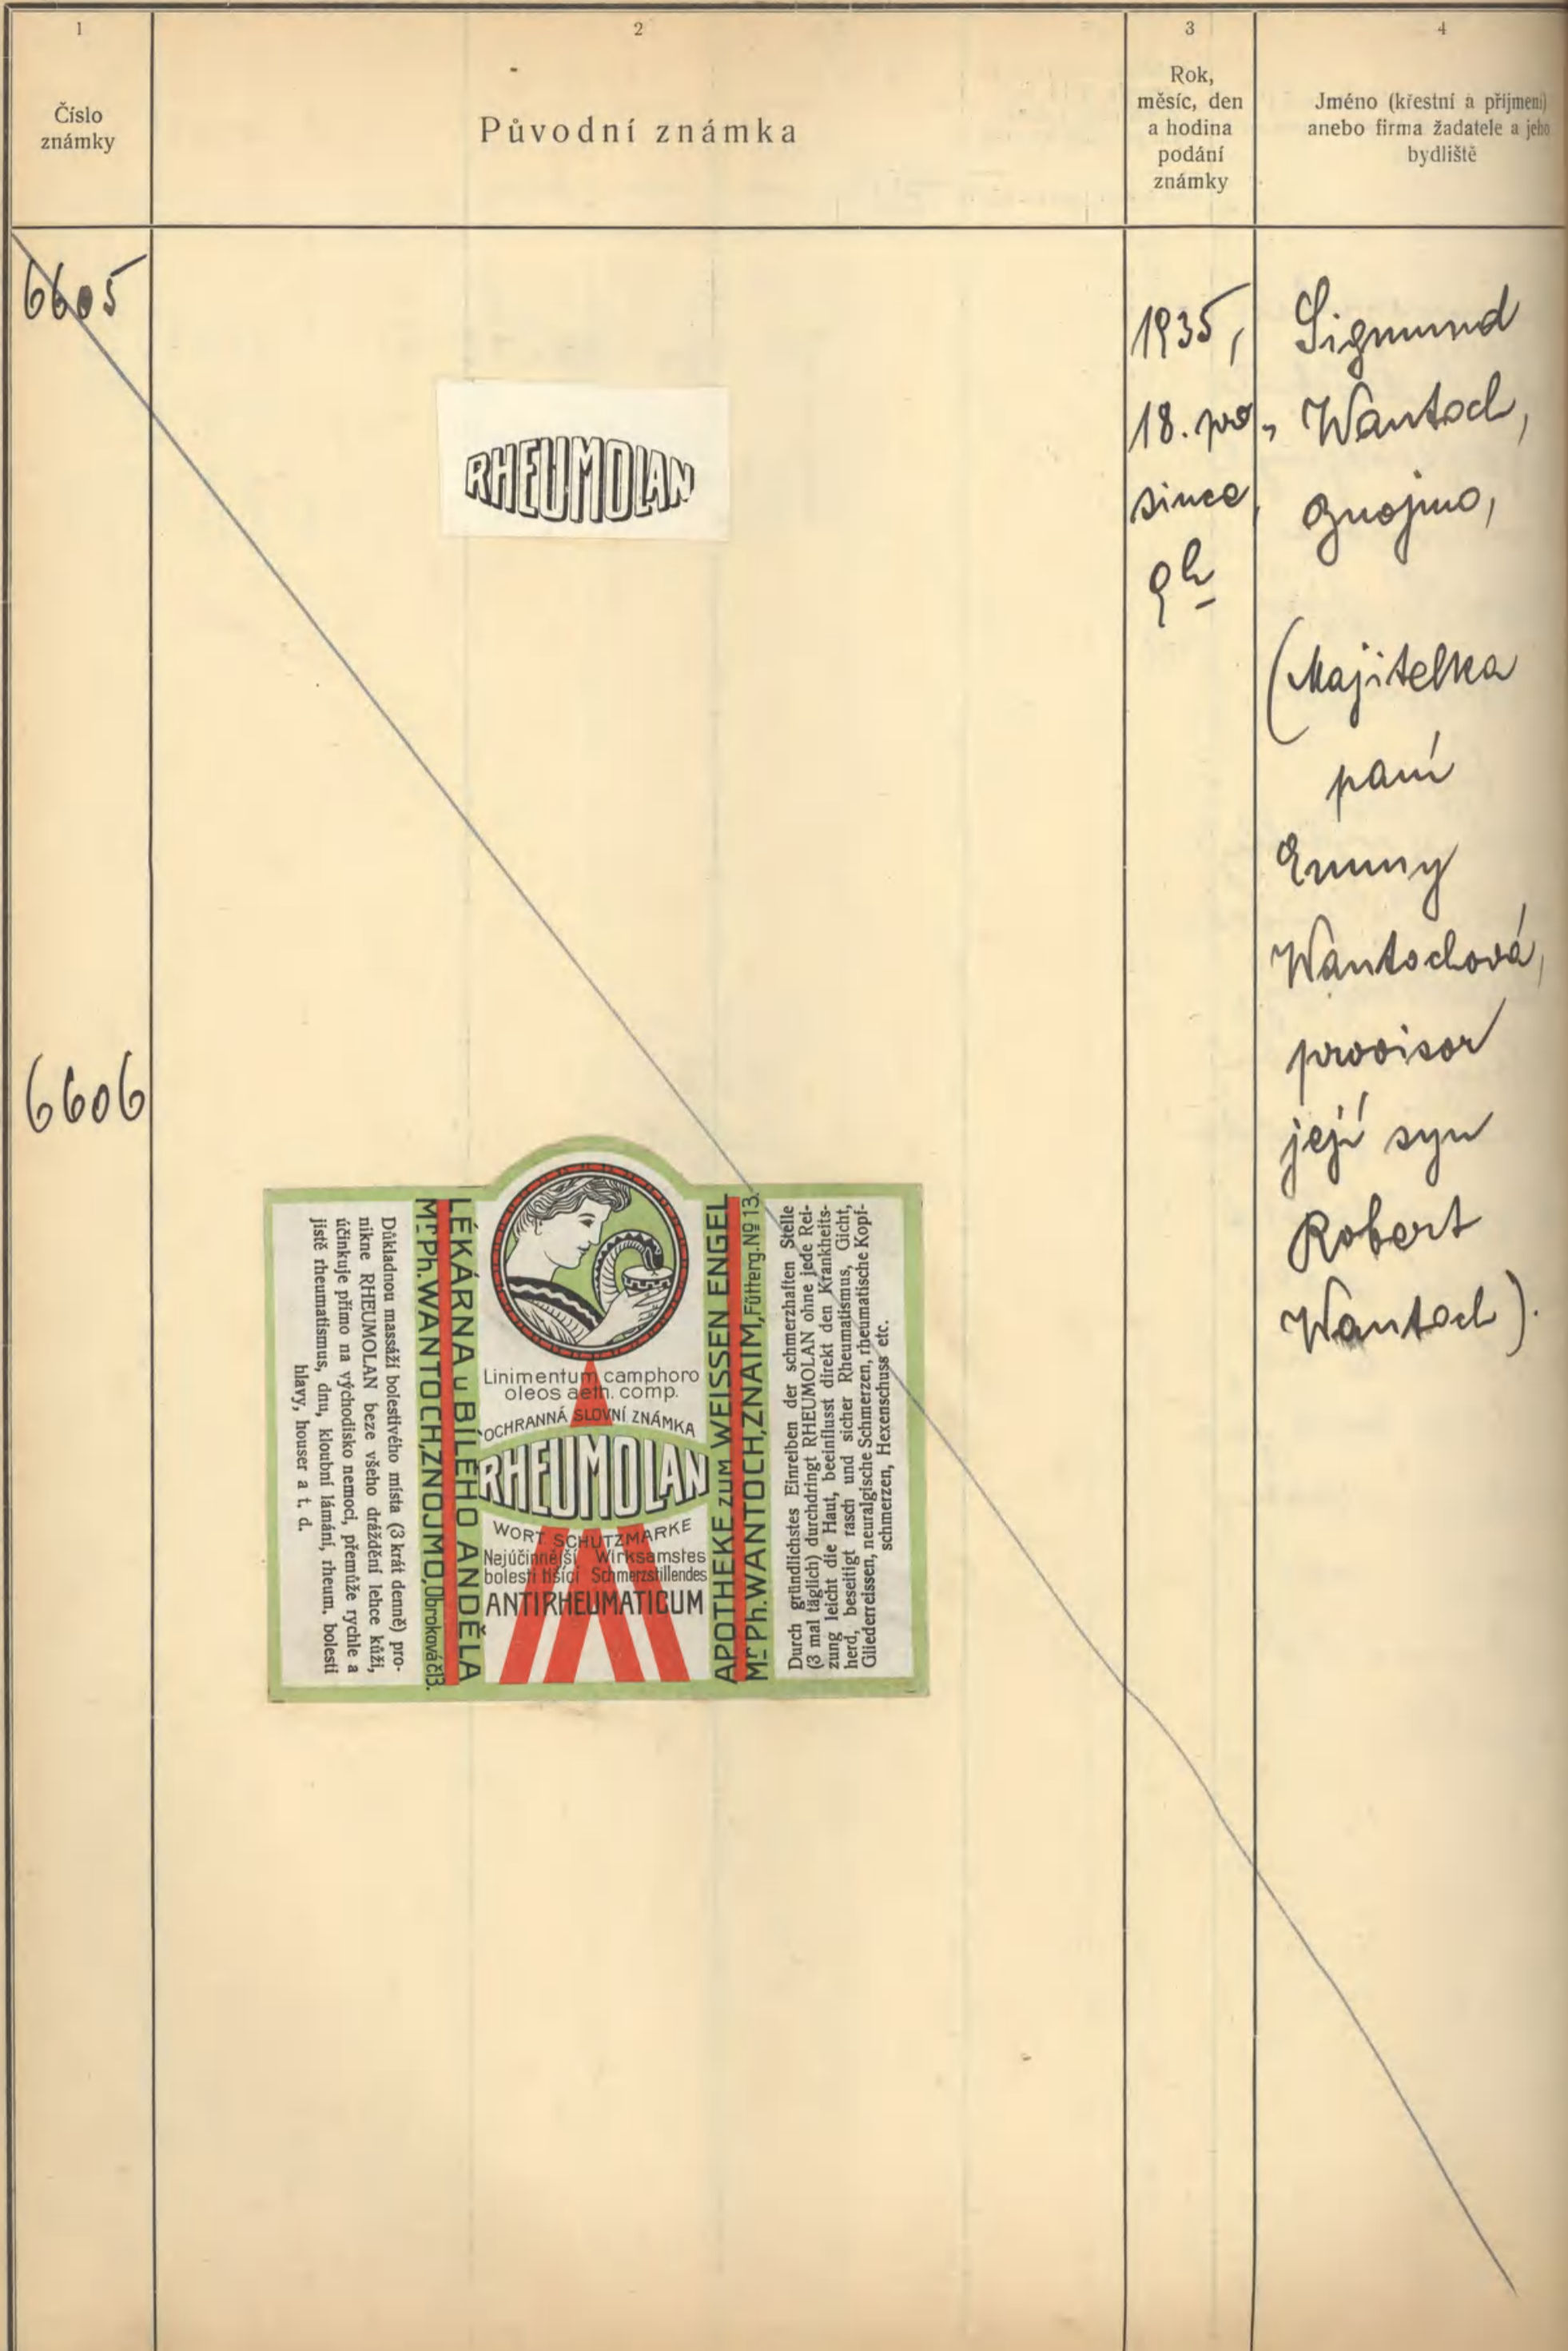 1
Číslo
známky
2
Původní známka
3
Rok,
měsíc, den
a hodina
podání
známky
4
Jméno (křestní a příjmení)
anebo firma žadatele a jeho
bydliště
6605
RHEUMOLAN
1935,
18. pro-
since,
9h
Sigmund
Wantoch,
Znojmo,
(Majitelka
paní
Emmy
Wantochová,
provisor
její syn
Robert
Wantoch).
6606
Důkladnou massáží bolestivého místa (3 krát denně) pro-
nikne RHEUMOLAN beze všeho dráždění lehce kůži,
účinkuje přímo na východisko nemoci, přemůže rychle a
jistě rheumatismus, dnu, kloubní lámání, rheum. bolesti
hlavy, houser a t. d.
LÉKÁRNA u BÍLÉHO ANDĚLA
Mr Ph. WANTOCH, ZNOJMO, Obroková č13.
Linimentum camphoro
oleos aeth. comp.
OCHRANNÁ SLOVNÍ ZNÁMKA
RHEUMOLAN
WORT SCHUTZMARKE
Nejúčinnější Wirksamstes
bolesti tišící Schmerzstillendes
ANTIRHEUMATICUM
APOTHEKE ZUM WEISSEN ENGEL
Mr Ph. WANTOCH, ZNAIM, Fütterg. No 13.
Durch gründlichstes Einreiben der schmerzhaften Stelle
(3 mal täglich) durchdringt RHEUMOLAN ohne jede Rei-
zung leicht die Haut, beeinflusst direkt den Krankheits-
herd, beseitigt rasch und sicher Rheumatismus, Gicht,
Gliederreissen, neuralgische Schmerzen, rheumatische Kopf-
schmerzen, Hexenschuss etc.